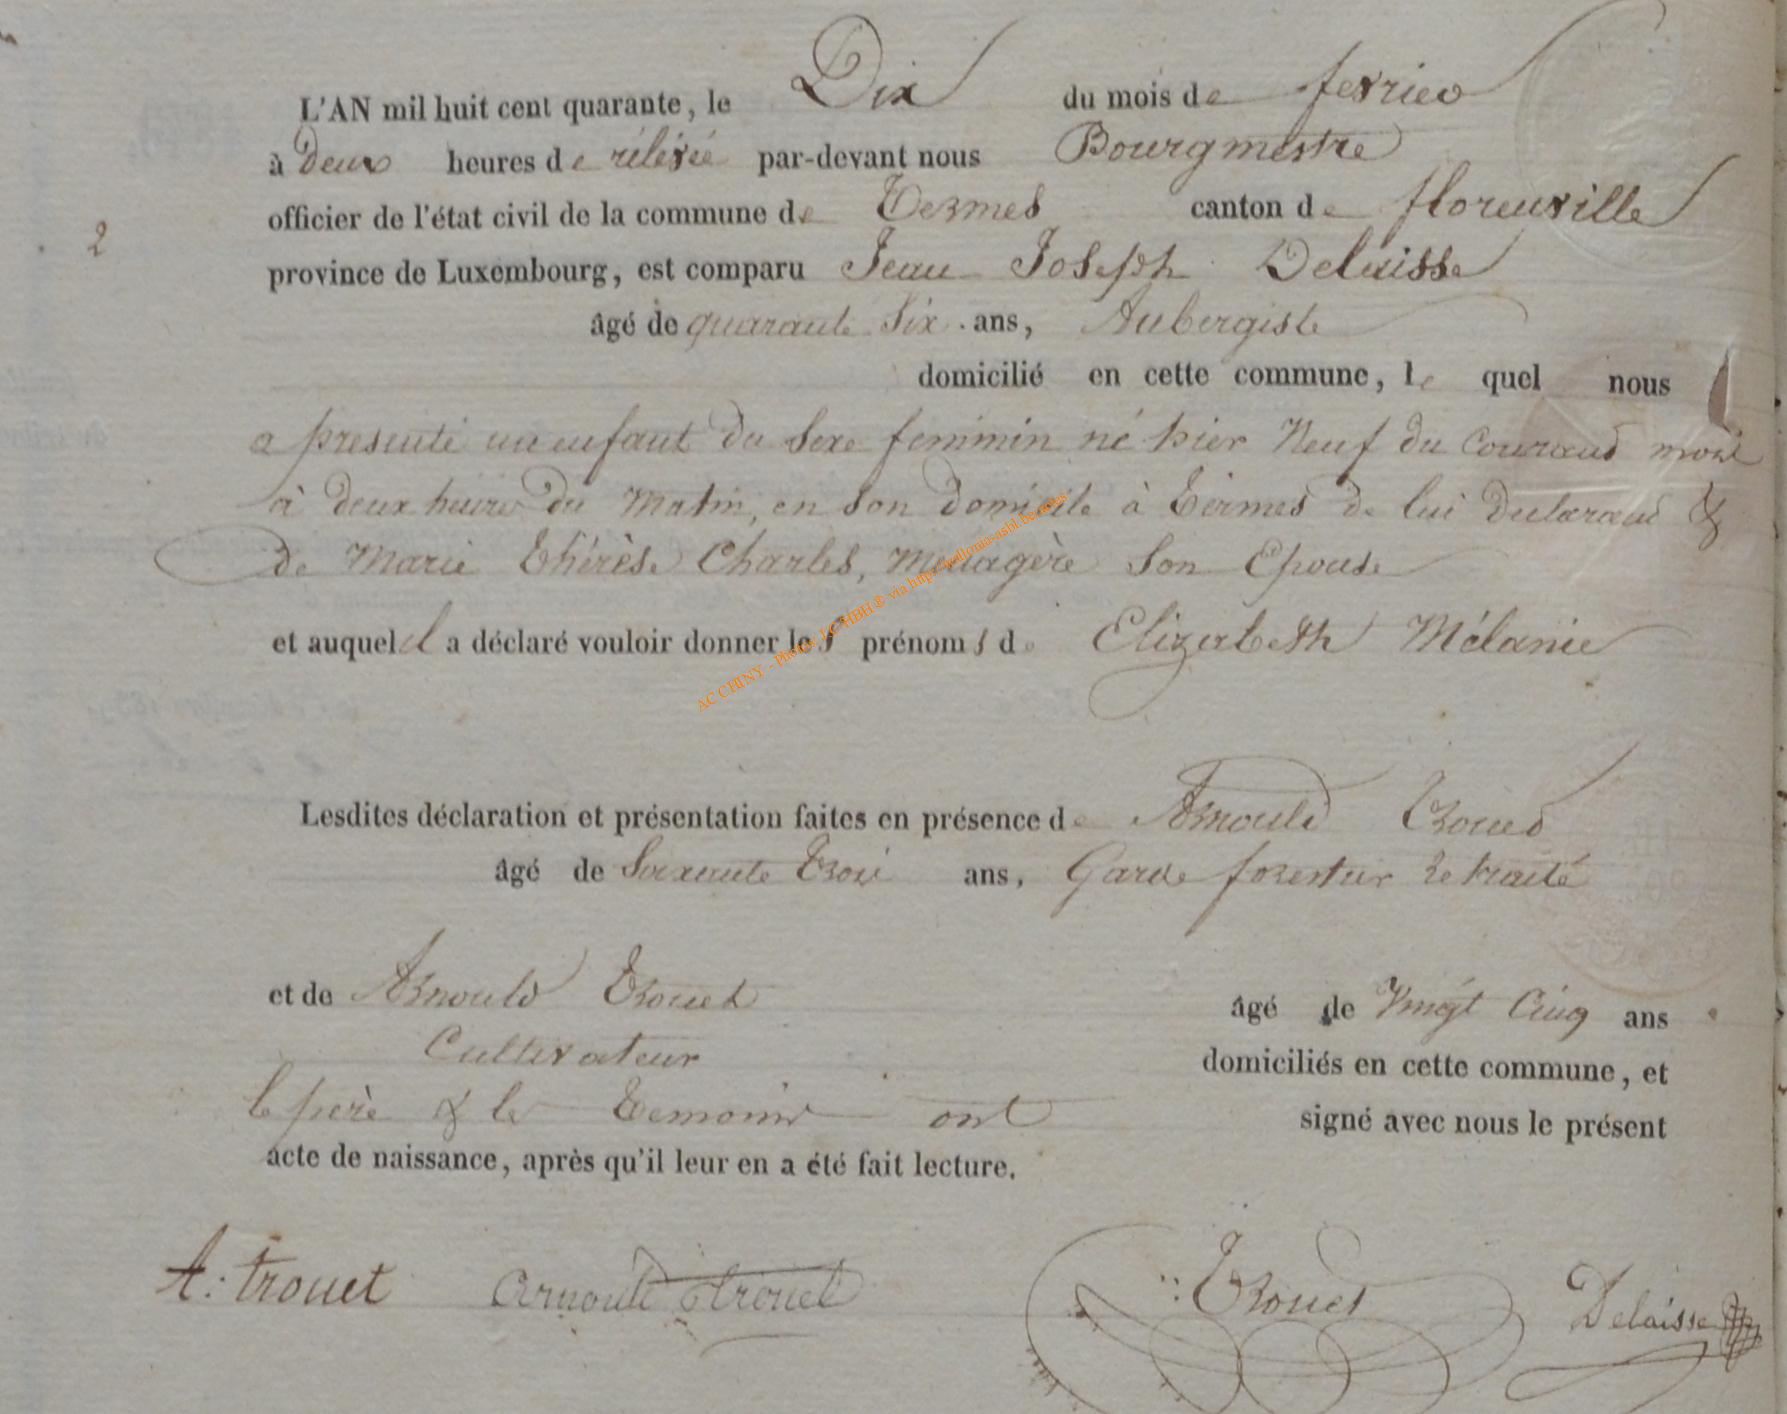 L'AN mil huit cent quarante, le Dix du mois de fevrier
à deux heures de rélévée par-devant nous Bourgmestre
officier de l'état civil de la commune de Termes canton de florenville
2
province de Luxembourg, est comparu Jean Joseph Delaisse
âgé de quarante Six ans, Aubergiste
domicilié en cette commune, le quel nous
a presenté un enfant du Sexe feminin né hier Neuf du Courand mois
à deux heures du Matin, en son domicile à Termes de lui declarant &
de Marie Thérèse Charles, Menagère Son Epouse
et auquel il a déclaré vouloir donner les prénoms de Elizabeth Mélanie
AC CHINY - Photos LC-HBH ® via http://wallonia-asbl.be
Lesdites déclaration et présentation faites en présence de Arnould Trouet
âgé de Soixante Trois ans, Garde forestier retraité
et de Arnould Trouet âgé de Vingt Cinq ans
Cultivateur domiciliés en cette commune, et
le père & les Temoins ont signé avec nous le présent
acte de naissance, après qu'il leur en a été fait lecture.
A: trouet Arnould trouet Trouet Delaisse